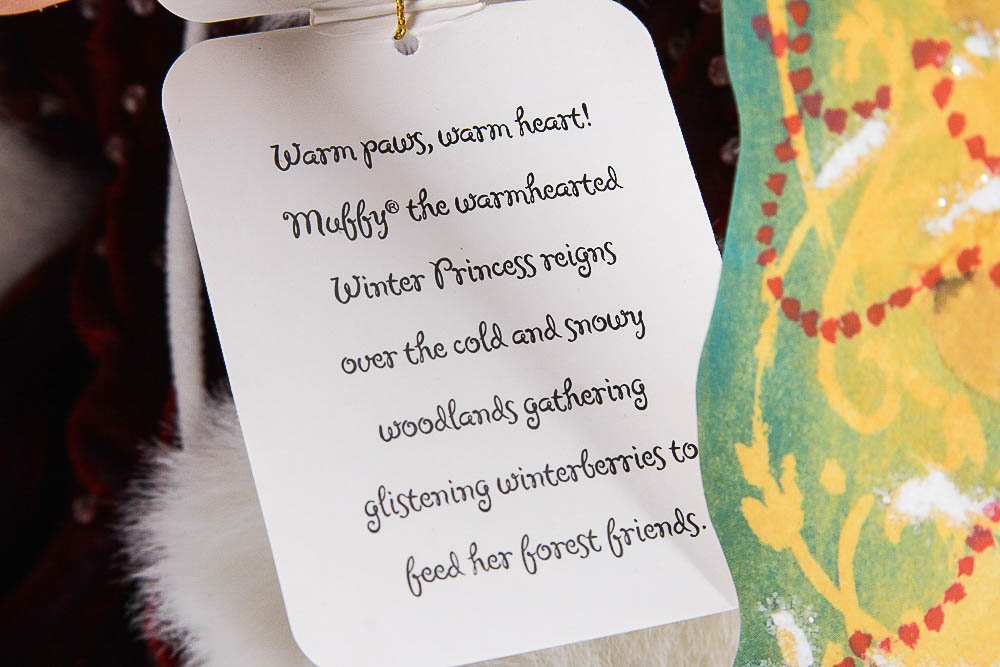 Warm paws, warm heart!
Muffy® the warmhearted
Winter Princess reigns
over the cold and snowy
woodlands gathering
glistening winterberries to
feed her forest friends.